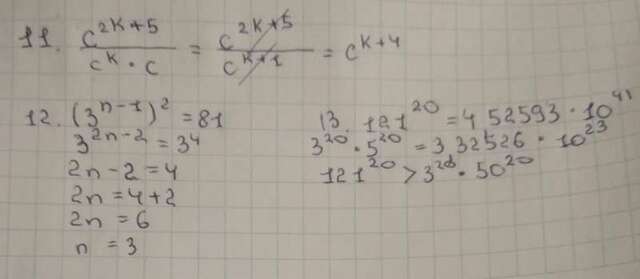 11. c^{2k+5} / c^k · c = c^{2k+5} / c^{k+1} = c^{k+4}
12. (3^{n-1})^2 = 81
3^{2n-2} = 3^4
2n-2 = 4
2n = 4+2
2n = 6
n = 3
13. 121^{20} = 4 52593 · 10^{41}
3^{20} · 5^{20} = 3 32526 · 10^{23}
121^{20} > 3^{20} · 50^{20}